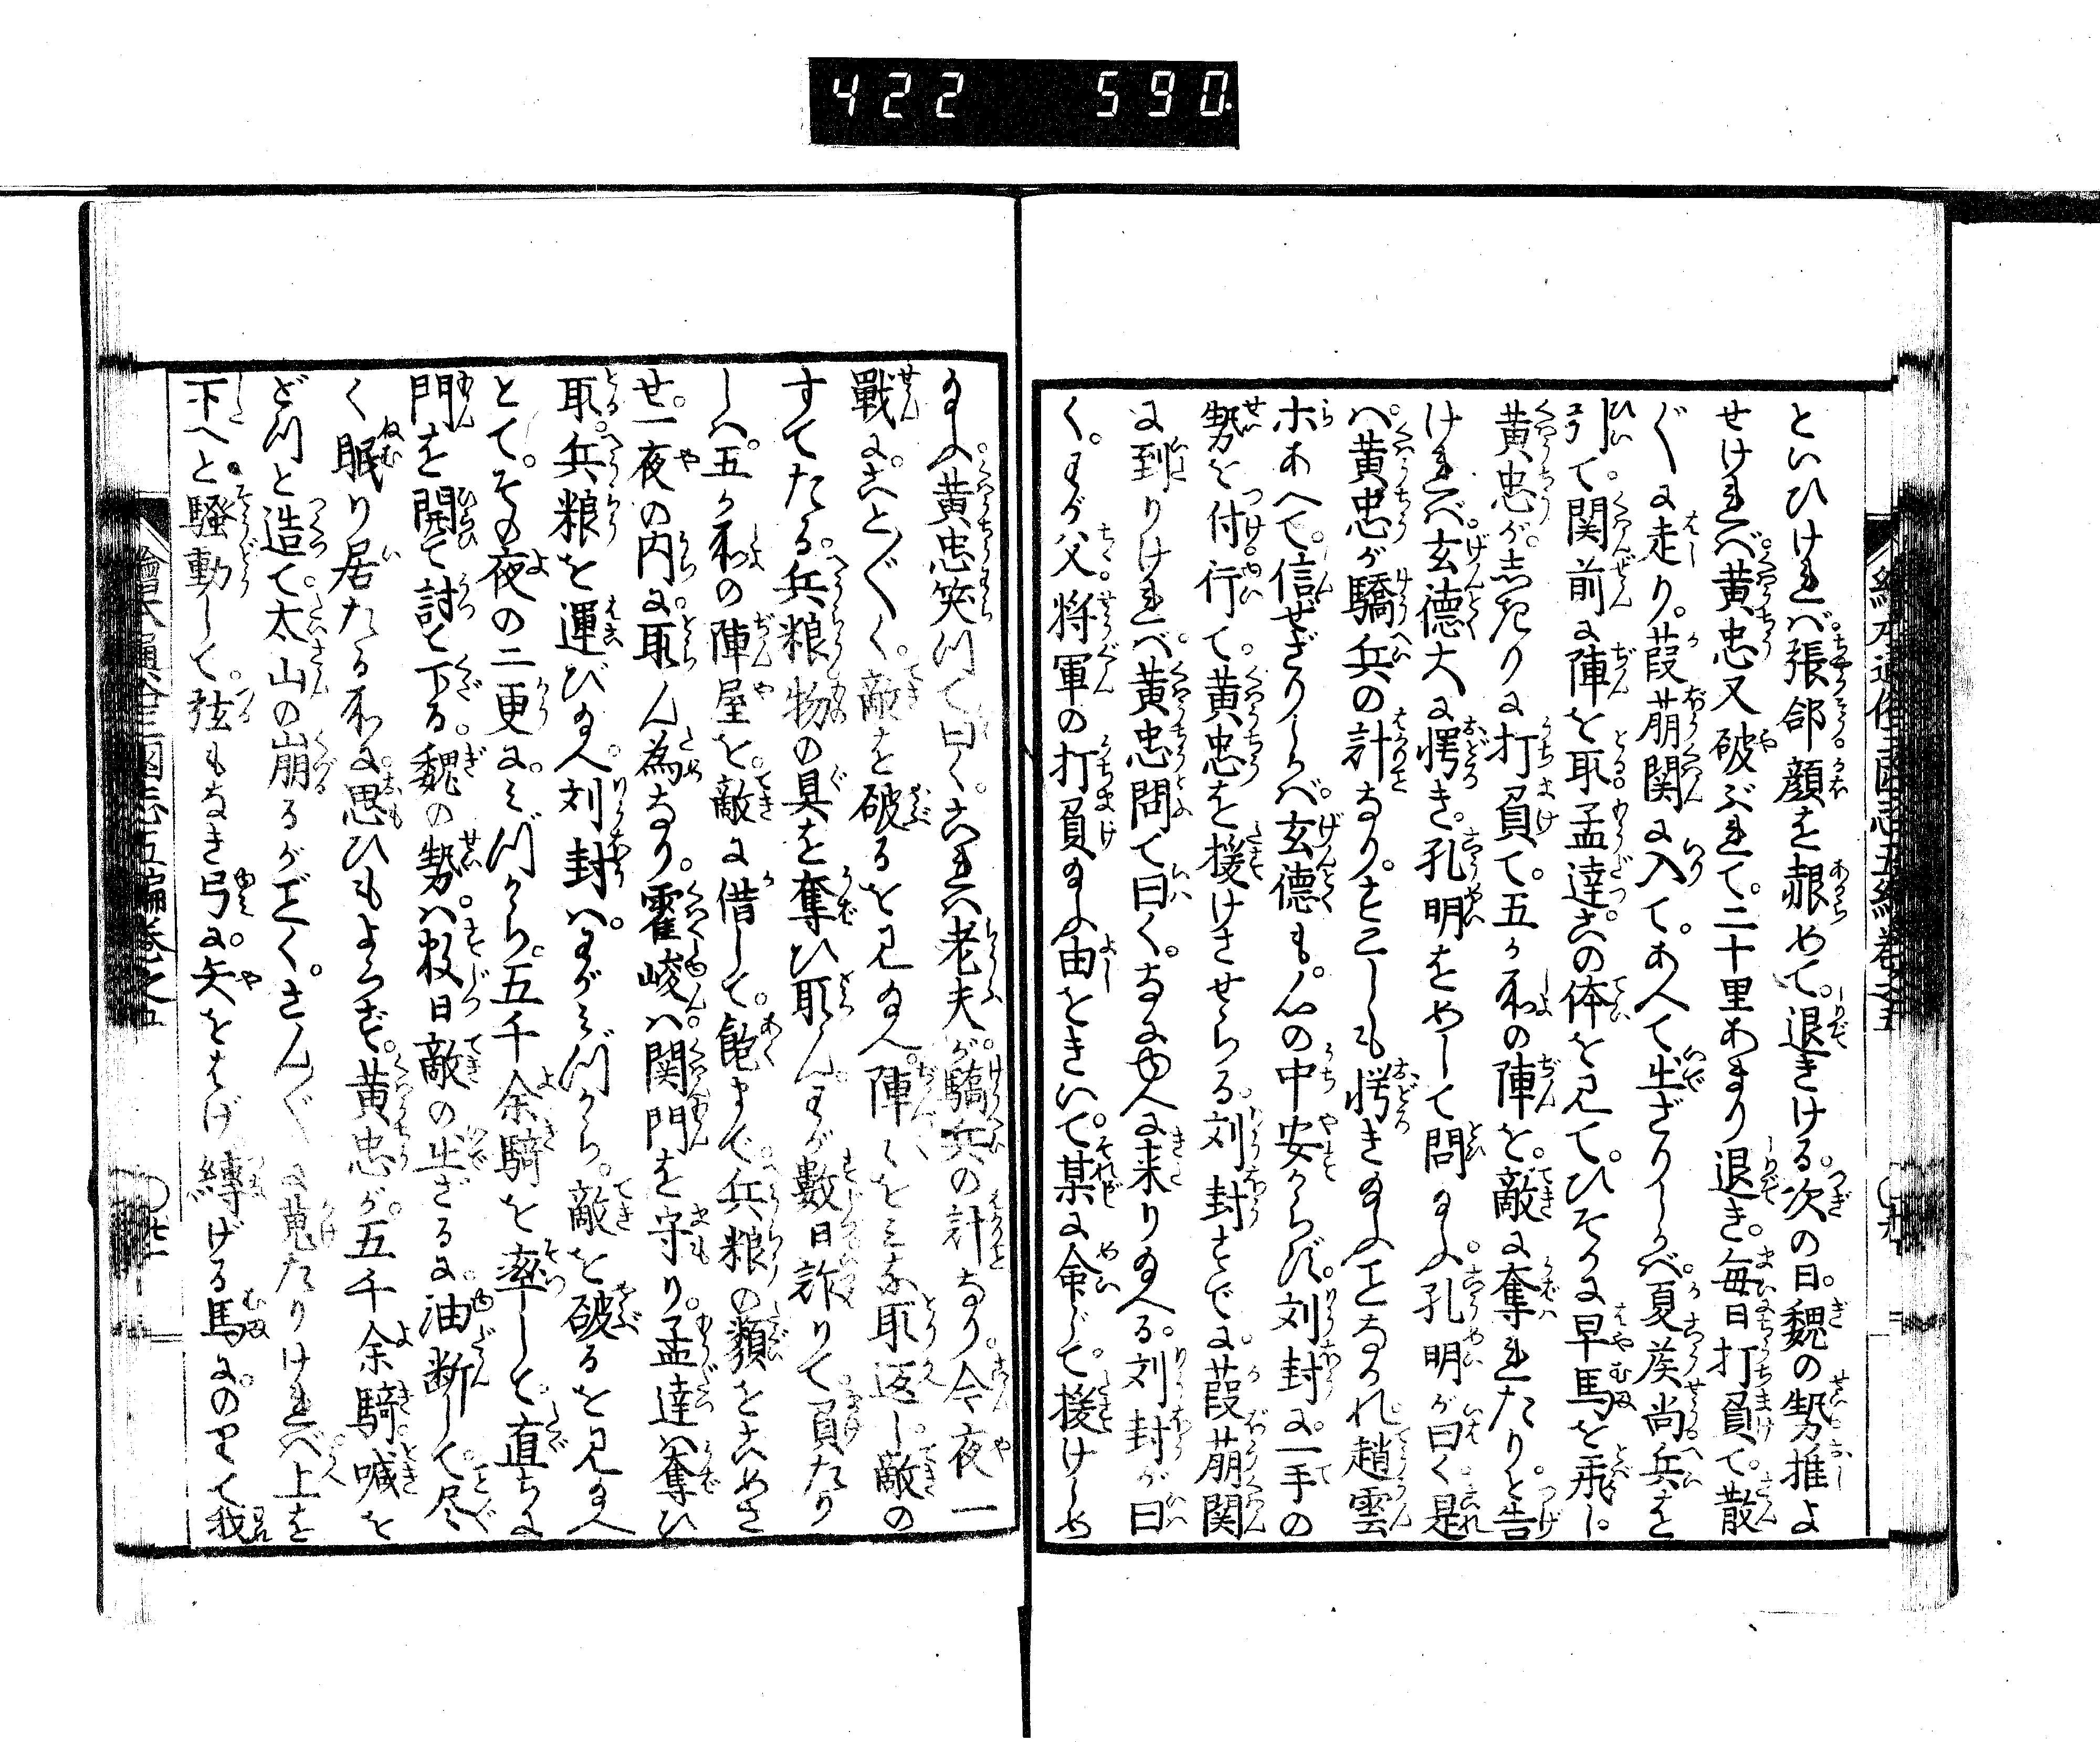 422 590
といひけれバ張郃顔を赧めて退きける次の日魏の㔟推よ
せけれバ黄忠又破ぶれて二十里あまり退き毎日打負て散
〴〵に走り葭萌関に入てあへて出ざりしかバ夏侯尚兵を
引て関前に陣を取孟達この体を見てひそかに早馬を飛し
黄忠が志きりに打負て五ヶ所の陣を敵に奪れたりと告
けれバ玄徳大に愕き孔明をめして問給ふ孔明が曰く是
ハ黄忠が驕兵の計なり すこしも愕き給ふことなかれ趙雲
ホあへて信ぜざりしかバ玄徳も心の中安からず刘封に一手の
㔟を付行て黄忠を援けさせらる刘封すでに葭萌関
に到りけれバ黄忠問て曰くなにゆへに来り給へる刘封が曰
く わが父将軍の打負給ふ由をきいて某に命じて援けしめ
給ふ黄忠笑つて曰くこれハ老夫が驕兵の計なり今夜一
戰にこと〴〵く敵を破るを見給へ陣〻をミな取返し敵の
すてたる兵粮物の具を奪ひ取んわが數日詐りて負たり
しハ五ヶ所の陣屋を敵に借して飽まで兵粮の類をこめさ
せ一夜の内に取ん為なり霍峻ハ関門を守り孟達ハ奪ひ
取兵粮を運び給へ刘封ハわがミづから敵を破るを見給へ
とてその夜の二更にミづから五千余騎を率しと直ちに
門を開て討て下る魏の㔟ハ数日敵の出ざるに油断して尽
く眠り居たる所に思ひもよらず黄忠が五千余騎喊を
どつと造て太山の崩るがごくさん〴〵に蒐たりけれバ上を
下へと騒動して弦もなき弓に矢をはげ縳げる馬にのりて我